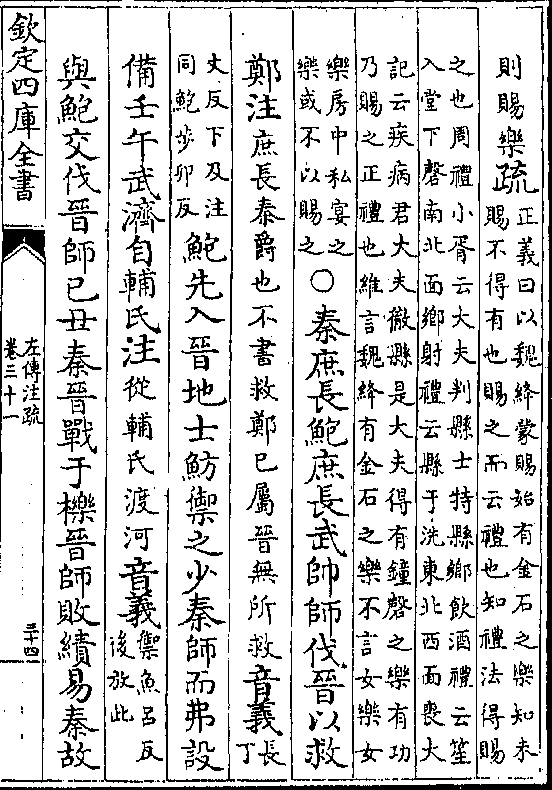 則賜樂疏正義曰以魏絳蒙賜始有金石之樂知未
賜不得有也賜之而云禮也知禮法得賜
之也周禮小胥云大夫判縣士特縣鄉飲酒禮云笙
入堂下磬南北面鄉射禮云縣于洗東北西面喪大
記云疾病君大夫徹縣是大夫得有鐘磬之樂有功
乃賜之正禮也維言魏絳有金石之樂不言女樂女
樂房中私宴之
樂或不以賜之
○秦庶長鮑庶長武帥師伐晉以救
鄭注庶長秦爵也不書救鄭已屬晉無所救音義長
丁
丈反下及注
同鮑步卯反
鮑先入晉地士魴禦之少秦師而弗設
備壬午武濟自輔氏注從輔氏渡河音義禦魚呂反
後放此
與鮑交伐晉師己丑秦晉戰于櫟晉師敗績易秦故
欽定四庫全書
左傳注疏
卷三十一
三十四